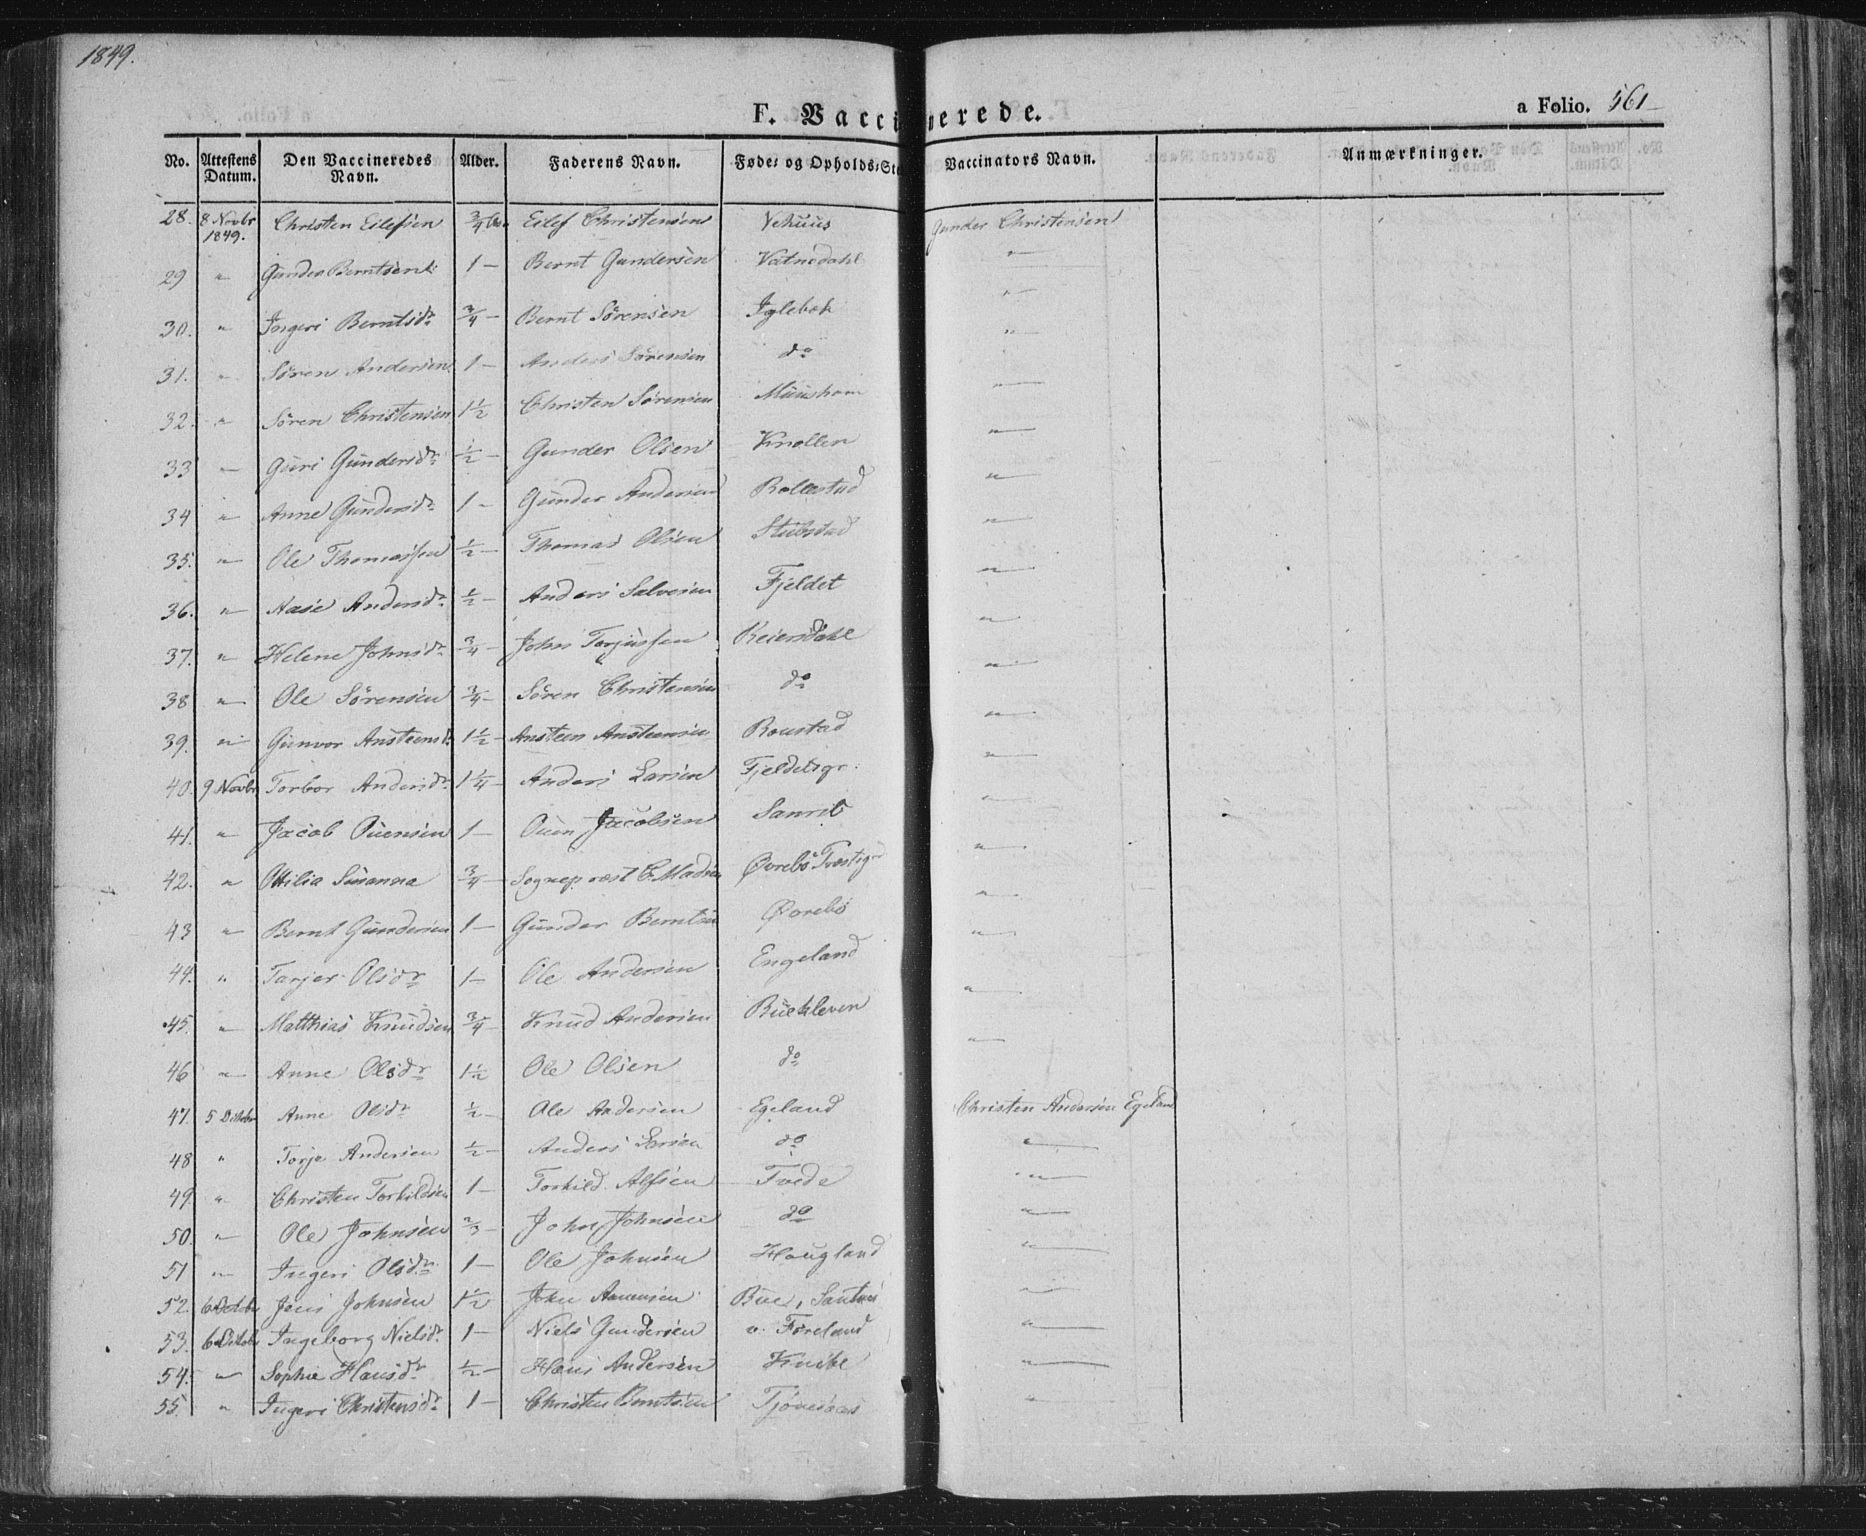 1849.
F. Vaccinerede.
a Folio. 561
No. Attestens Datum. Den Vaccineredes Navn. Alder. Faderens Navn. Føde- og Opholds-Ste Vaccinators Navn. Anmærkninger.
28. 8 Novbr 1849. Christen Eilefsen 3/4 Eilef Christensen Vehuus Gunder Christensen
29 " Gunder Berntsen 1 – Bernt Gundersen Vatnedahl "
30. " Ingeri Berntsdr 3/4 – Bernt Sørensen Iglebek "
31. " Søren Andersen 1 – Anders Sørensen do "
32. " Søren Christensen 1 1/2 Christen Sørensen "
33 " Guri Gundersdr 1/2 – Gunder Olsen Knollen "
34 " Anne Gundersdr 1 – Gunder Andersen Rollestad "
35. " Ole Thomassen 1/2 – Thomas Olsen Stubstad "
36. " Aase Andersdr 1/2 – Anders Salvesen Fjeldet "
37. " Helene Johnsdr 3/4 – John Torjussen Reiersdahl "
38 " Ole Sørensen 3/4 – Søren Christensen do "
39. " Gunvor Ansteensdr 1 1/2 – Ansteen Ansteensen Roustad "
40. 9 Novbr Torbor Andersdr 1 1/4 – Anders Larsen Fjeldetsgr: "
41. " Jacob Ouensen 1 – Ouen Jacobsen "
42. " Ottilia Susanna 3/4 – Sognepræst C. Madsen Øvrebø "
43 " Bernt Gundersen 1 – Gunder Berntsen Øvrebø "
44. " Tarjer Olsdr 1 – Ole Andersen Engeland "
45. " Matthias Knudsen 3/4 – Knud Andersen Buekleven "
46 " Anne Olsdr 1 1/2 Ole Olsen do "
47. 5 Anne Olsdr 1/2 – Ole Andersen Egeland Christen Andersen Egeland
48 " Torje Andersen 1/2 – Anders Larsen do "
49. " Christen Torkildsen 1 – Torkild Alfsen Tvede "
50. " Ole Johnsen 2/3 – John Johnsen do "
51 " Ingeri Olsdr 1 – Ole Johnsen Hougland "
52. 6 Jens Johnsen 1 1/2 John Aanensen Bue, "
53. 6 Ingeborg Nielsdr 1 – Niels Gundersen v. Føreland "
54. " Sophie Hansdr 1/2 – Hans Andersen "
55. " Ingeri Christensdr 1 – Christen Berntsen "